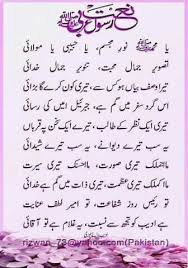 نعت رسول عربی ﷺ
یا محمد ﷺ نور مجسم، یا حبیبی یا مولائی
تصویر جمال محبت، تنویر جمال خدائی
تیرا وصف بیاں ہو کس سے، تیری کون کرے گا بڑائی
اس گرد سفر میں گم ہے، جبریل امیں کی رسائی
تیری ایک نظر کے طالب، تیرے ایک سخن پہ قرباں
یہ سب تیرے دیوانے، یہ سب تیرے شیدائی
ما اجملک تیری صورت، ما احسنک تیری سیرت
ما اکملک تیری عظمت، تیری ذات میں گم ہے خدائی
تو رئیس روز شفاعت، تو امیر لطف و عنایت
ہے ادیب کو تجھ سے نسبت، یہ غلام ہے تو آقائی
rizwan_73@yahoo.com(Pakistan)